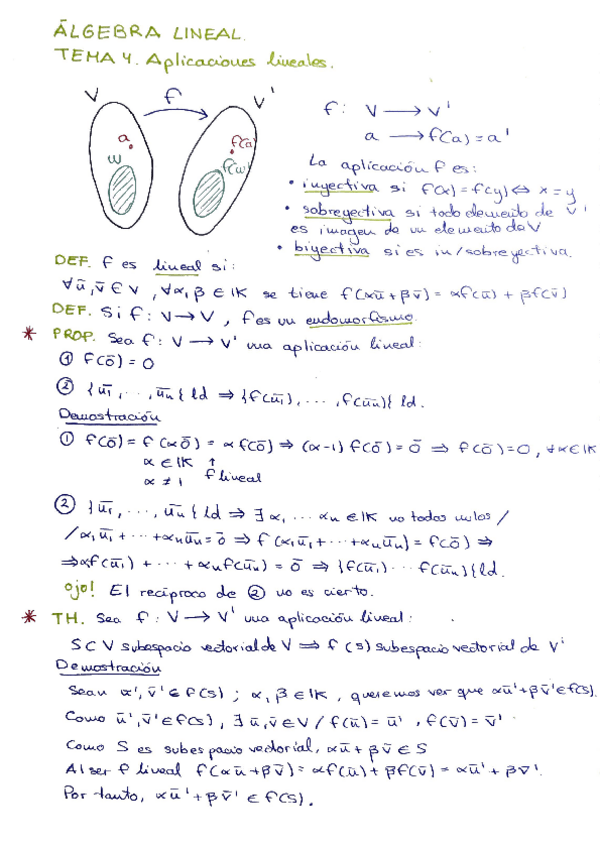 ÁLGEBRA LINEAL.
TEMA 4. Aplicaciones lineales.
V f V'
a f(a)
W f(W)
f: V → V'
a → f(a) = a'
La aplicación f es:
• inyectiva si f(x) = f(y) ⇔ x = y
• sobreyectiva si todo elemento de V'
es imagen de un elemento de V
• biyectiva si es in/sobreyectiva.
DEF. f es lineal si:
∀ū, v̄ ∈ V, ∀α, β ∈ IK se tiene f(αū + βv̄) = αf(ū) + βf(v̄)
DEF. Si f: V → V, f es un endomorfismo.
* PROP. Sea f: V → V' una aplicación lineal:
① f(ō) = 0
② {ū₁, ..., ūₙ} ld ⇒ {f(ū₁), ..., f(ūₙ)} ld.
Demostración
① f(ō) = f(αō) = αf(ō) ⇒ (α-1) f(ō) = ō ⇒ f(ō) = 0, ∀α ∈ IK
α ∈ IK ↑
α ≠ 1 f lineal
② {ū₁, ..., ūₙ} ld ⇒ ∃ α₁ ... αₙ ∈ IK no todos nulos /
/ α₁ū₁ + ... + αₙūₙ = ō ⇒ f(α₁ū₁ + ... + αₙūₙ) = f(ō) ⇒
⇒ αf(ū₁) + ... + αₙf(ūₙ) = ō ⇒ {f(ū₁) ... f(ūₙ)} ld.
ojo! El recíproco de ② no es cierto.
* TH. Sea f: V → V' una aplicación lineal:
S ⊂ V subespacio vectorial de V ⇒ f(S) subespacio vectorial de V'
Demostración
Sean ū', v̄' ∈ f(S); α, β ∈ IK, queremos ver que αū' + βv̄' ∈ f(S).
Como ū', v̄' ∈ f(S), ∃ ū, v̄ ∈ V / f(ū) = ū', f(v̄) = v̄'
Como S es subespacio vectorial, αū + βv̄ ∈ S
Al ser f lineal f(αū + βv̄) = αf(ū) + βf(v̄) = αū' + βv̄'.
Por tanto, αū' + βv̄' ∈ f(S).